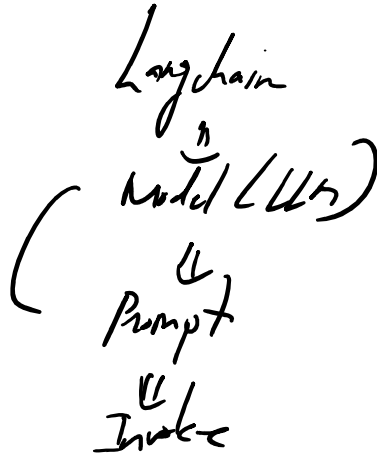 Langchain
Model (LLM)
Prompt
Invoke